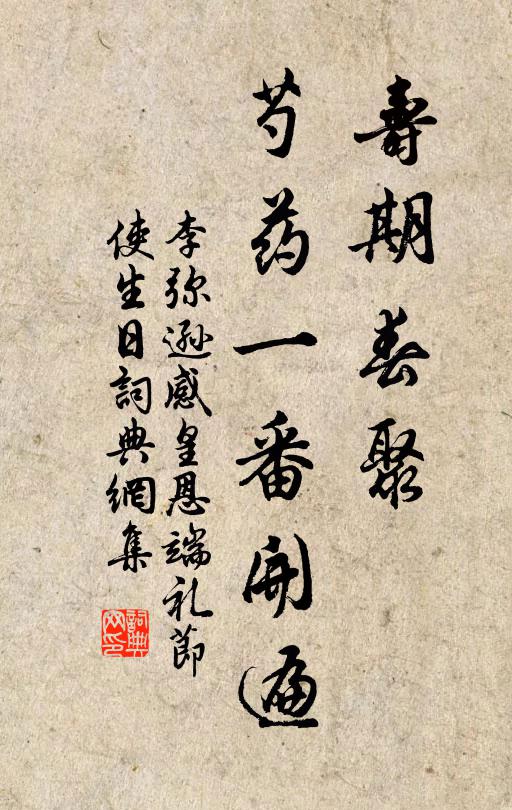 壽期春聚
芍药一番開遍
李弥遜感皇恩端礼節
使生日詞典網集
詞典
网印